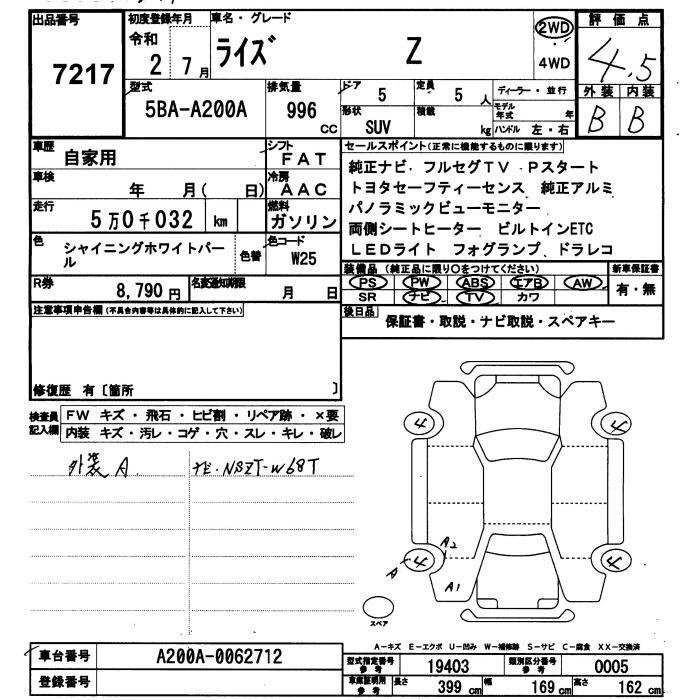 出品番号 初度登録年月 車名・グレード 2WD 評価点
7217 令和 2 7月 ライズ Z 4WD 4.5
型式 排気量 ドア 5 定員 5 人 ディーラー・並行 外装 内装
5BA-A200A 996 cc 形状 SUV 積載 kg モデル年式 年 ハンドル 左・右 B B
車歴 自家用 シフト FAT セールスポイント(正常に機能するものに限ります)
車検 年 月( 日) 冷房 AAC 純正ナビ フルセグTV Pスタート
トヨタセーフティーセンス 純正アルミ
走行 5万0千032 km 燃料 ガソリン パノラミックビューモニター
両側シートヒーター ビルトインETC
色 シャイニングホワイトパール 色替 色コード W25 LEDライト フォグランプ ドラレコ
装備品(純正品に限り○をつけてください) 新車保証書
R券 8,790円 名変通知期限 月 日 PS PW ABS エアB AW 有・無
SR ナビ TV カワ
注意事項申告欄(不具合内容等は具体的に記入して下さい) 後日品 保証書・取説・ナビ取説・スペアキー
修復歴 有〔箇所 〕
検査員記入欄 FW キズ・飛石・ヒビ割・リペア跡・×要
内装 キズ・汚レ・コゲ・穴・スレ・キレ・破レ
外装 A ナビ・NSZT-W68T
4 4
A2
A 4 4
A1
スペア
A-キズ E-エクボ U-凹み W-補修跡 S-サビ C-腐食 XX-交換済
車台番号 A200A-0062712 型式指定番号 参考 19403 類別区分番号 参考 0005
登録番号 車庫証明用 参考 長さ 399 cm 幅 169 cm 高さ 162 cm